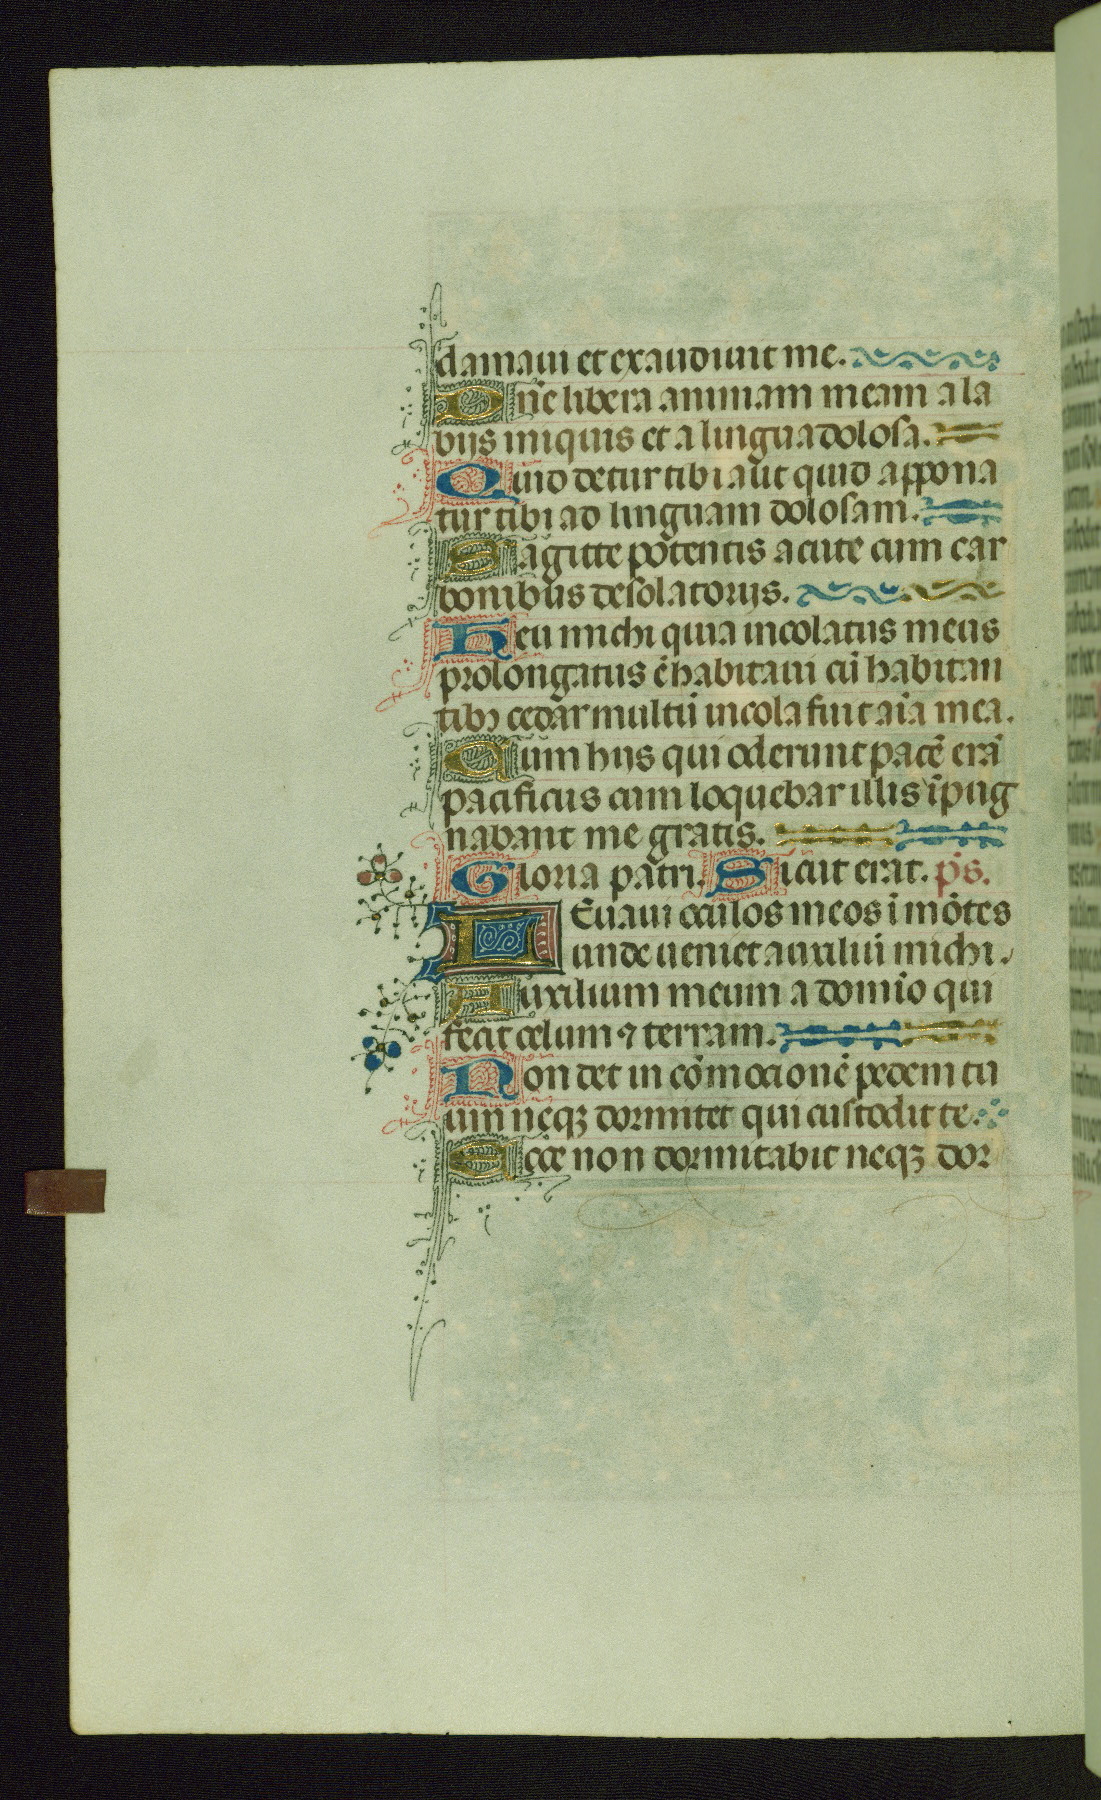 clamaui et exaudiuit me.
Dn̄e libera animam meam a la
bijs iniquis et a lingua dolosa.
Quid detur tibi aut quid appona
tur tibi ad linguam dolosam.
Sagitte potentis acute cum car
bonibus desolatorijs.
Heu michi quia incolatus meus
prolongatus ē habitaui cū habitan
tibꝫ cedar multū incola fuit aīa mea.
Cum hijs qui oderunt pacē erā
pacificus cum loquebar illis īpug
nabant me gratis.
Gloria patri. Sicut erat. p̄s.
LEuaui oculos meos ī mōtes
unde ueniet auxiliū michi.
Auxilium meum a domīo qui
fecit celum ⁊ terram.
Non det in cōmocionē pedem tu
um neqꝫ dormitet qui custodit te.
Ecce non dormitabit neqꝫ dor